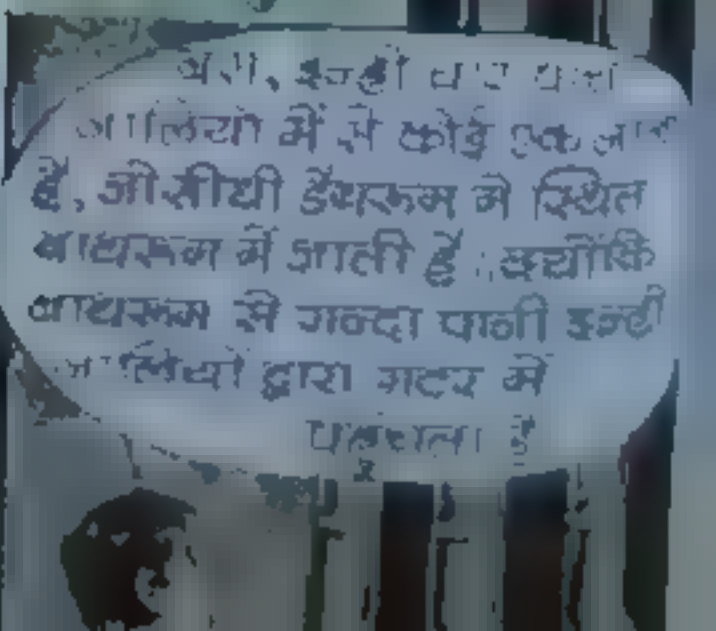 बस, इन्ही चार पांच
नालियों में से कोई एक नाली
है, जो सीधी डेंथरूम मे स्थित
बाथरूम में आती है . क्योंकि
बाथरूम से गन्दा पानी इन्ही
नालियों द्वारा गटर में
पहुंचता है